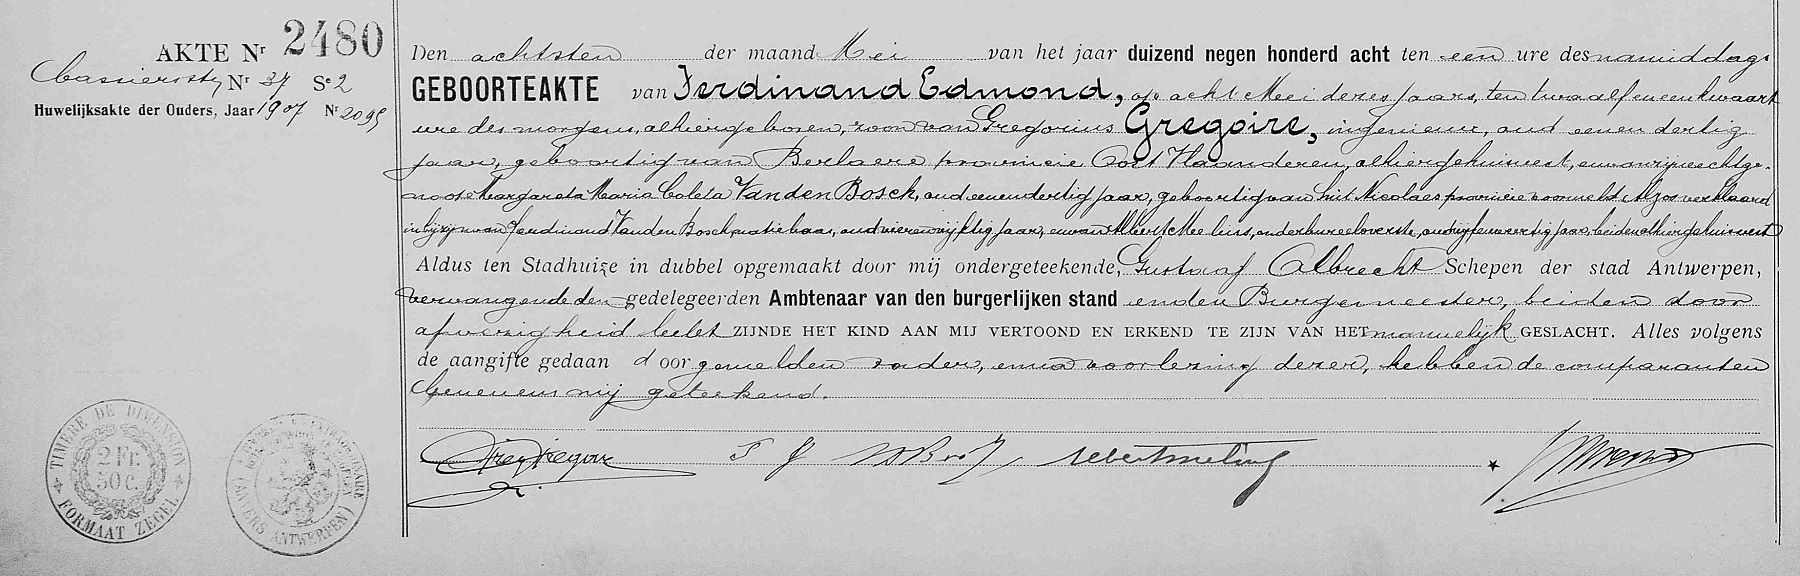 AKTE Nr 2480
Cassiersstr Nr 37 Se 2
Huwelijksakte der Ouders, Jaar 1907 Nr 2095
Den achtsten der maand Mei van het jaar duizend negen honderd acht ten een ure des namiddags
GEBOORTEAKTE van Ferdinand Edmond, op acht Mei dezes jaars, ten twaalf en een kwaart
ure des morgens, alhier geboren, zoon van Gregorius Gregoire, ingenieur, oud eenen dertig
jaar, geboortig van Berlaere provincie Oost Vlaanderen, alhier gehuisvest, en van zijne echtge-
noote Margareta Maria Coleta Van den Bosch, oud eenendertig jaar, geboortig van Sint Nicolaes provincie voormeld. Alzoo verklaard
in bijzijn van Ferdinand Van den Bosch, oud vierenvijftig jaar, en van Albert onderbureeloverste, oud vijfenveertig jaar, beiden alhier gehuisvest
Aldus ten Stadhuize in dubbel opgemaakt door mij ondergeteekende, Gustaaf Albrecht Schepen der stad Antwerpen,
vervangende den gedelegeerden Ambtenaar van den burgerlijken stand en den Burgemeester, beiden door
afwezigheid belet ZIJNDE HET KIND AAN MIJ VERTOOND EN ERKEND TE ZIJN VAN HET mannelijk GESLACHT. Alles volgens
de aangifte gedaan door gemelden vader, en na voorlezing dezer, hebben de comparanten
benevens mij geteekend.
TIMBRE DE DIMENSION
2 Fr. 50 C.
FORMAAT ZEGEL
ANTWERPEN